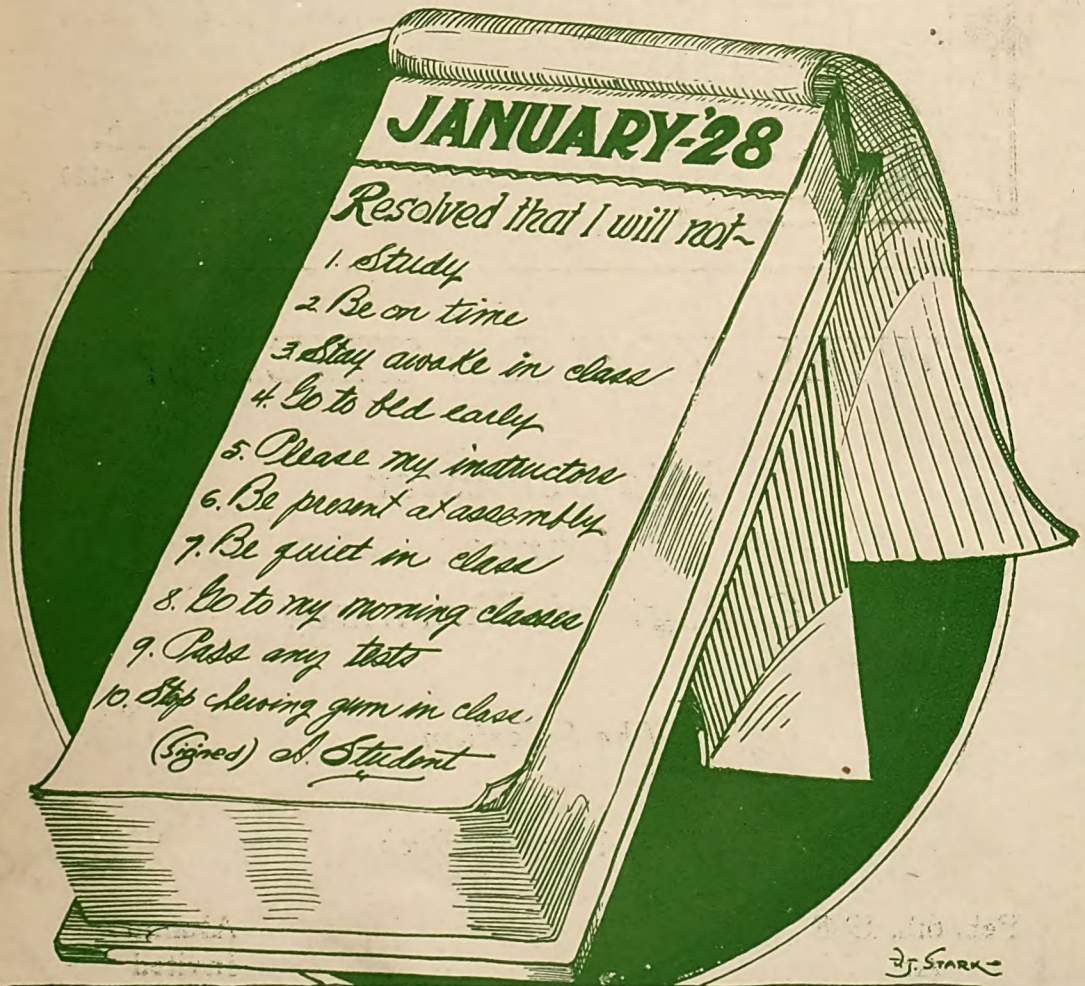 JANUARY-'28
Resolved that I will not~
1. Study
2. Be on time
3. Stay awake in class
4. Go to bed early
5. Please my instructors
6. Be present at assembly
7. Be quiet in class
8. Go to my morning classes
9. Pass any tests
10. Stop chewing gum in class.
(Signed) A. Student
STARK